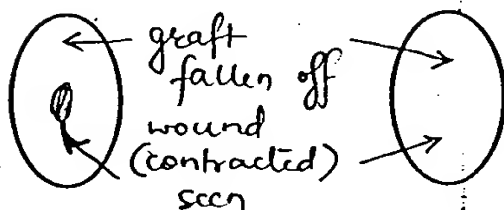 graft
fallen off
wound
(contracted)
seen